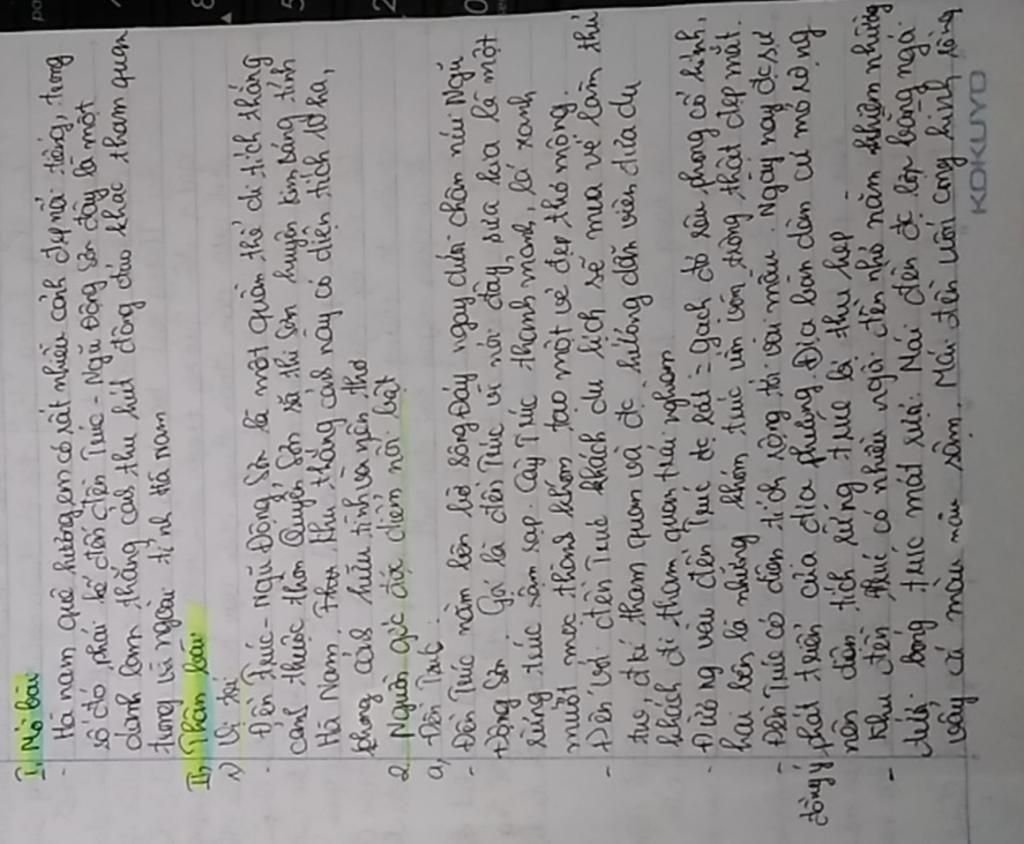 I, Mở bài
- Hà nam quê hương em có rất nhiều cảnh đẹp nổi tiếng, trong
số đó phải kể đến đền Trúc - Ngũ Động Sơn đây là một
danh lam thắng cảnh thu hút đông đảo khác tham quan
trong và ngoài tỉnh Hà Nam
II, Thân bài
1) Vị trí
- Đền Trúc - Ngũ Động Sơn là một quần thể di tích thắng
cảnh thuộc thôn Quyển Sơn xã thi Sơn huyện Kim bảng tỉnh
Hà Nam. Khu thắng cảnh này có diện tích 10 ha,
phong cảnh hữu tình và nên thơ
2, Nguồn gốc đặc điểm nổi bật
a, Đền Trúc
- Đền Trúc nằm bên bờ sông Đáy ngay dưới chân núi Ngũ
Động Sơn. Gọi là đền Trúc vì nơi đây, xưa kia là một
rừng trúc rậm rạp. Cây Trúc thanh mảnh, lá xanh
mướt mọc thành khóm tạo một vẻ đẹp thơ mộng.
- Đến với đền Trúc khách du lịch sẽ mua vé làm thủ
tục, để tham quan và đc hướng dẫn viên đưa du
khách đi tham quan trải nghiệm
- Đường vào đền Trúc đc lát = gạch đỏ rêu phong cổ kính,
hai bên là những khóm trúc uốn vòn trông thật đẹp mắt.
- Đền Trúc có diện tích rộng tới vài mẫu. Ngày nay đc sự
đồng ý phát triển của địa phương Địa bàn dân cư mở rộng
nên diện tích rừng trúc bị thu hẹp
- Khu đền Trúc có nhiều ngôi đền nhỏ nằm khiêm nhường
dưới bóng trúc mát rượi. Mái đền đc lợp bằng ngói
vảy cá màu nâu sậm. Mái đền uốn cong hình rồng
KOKUYO